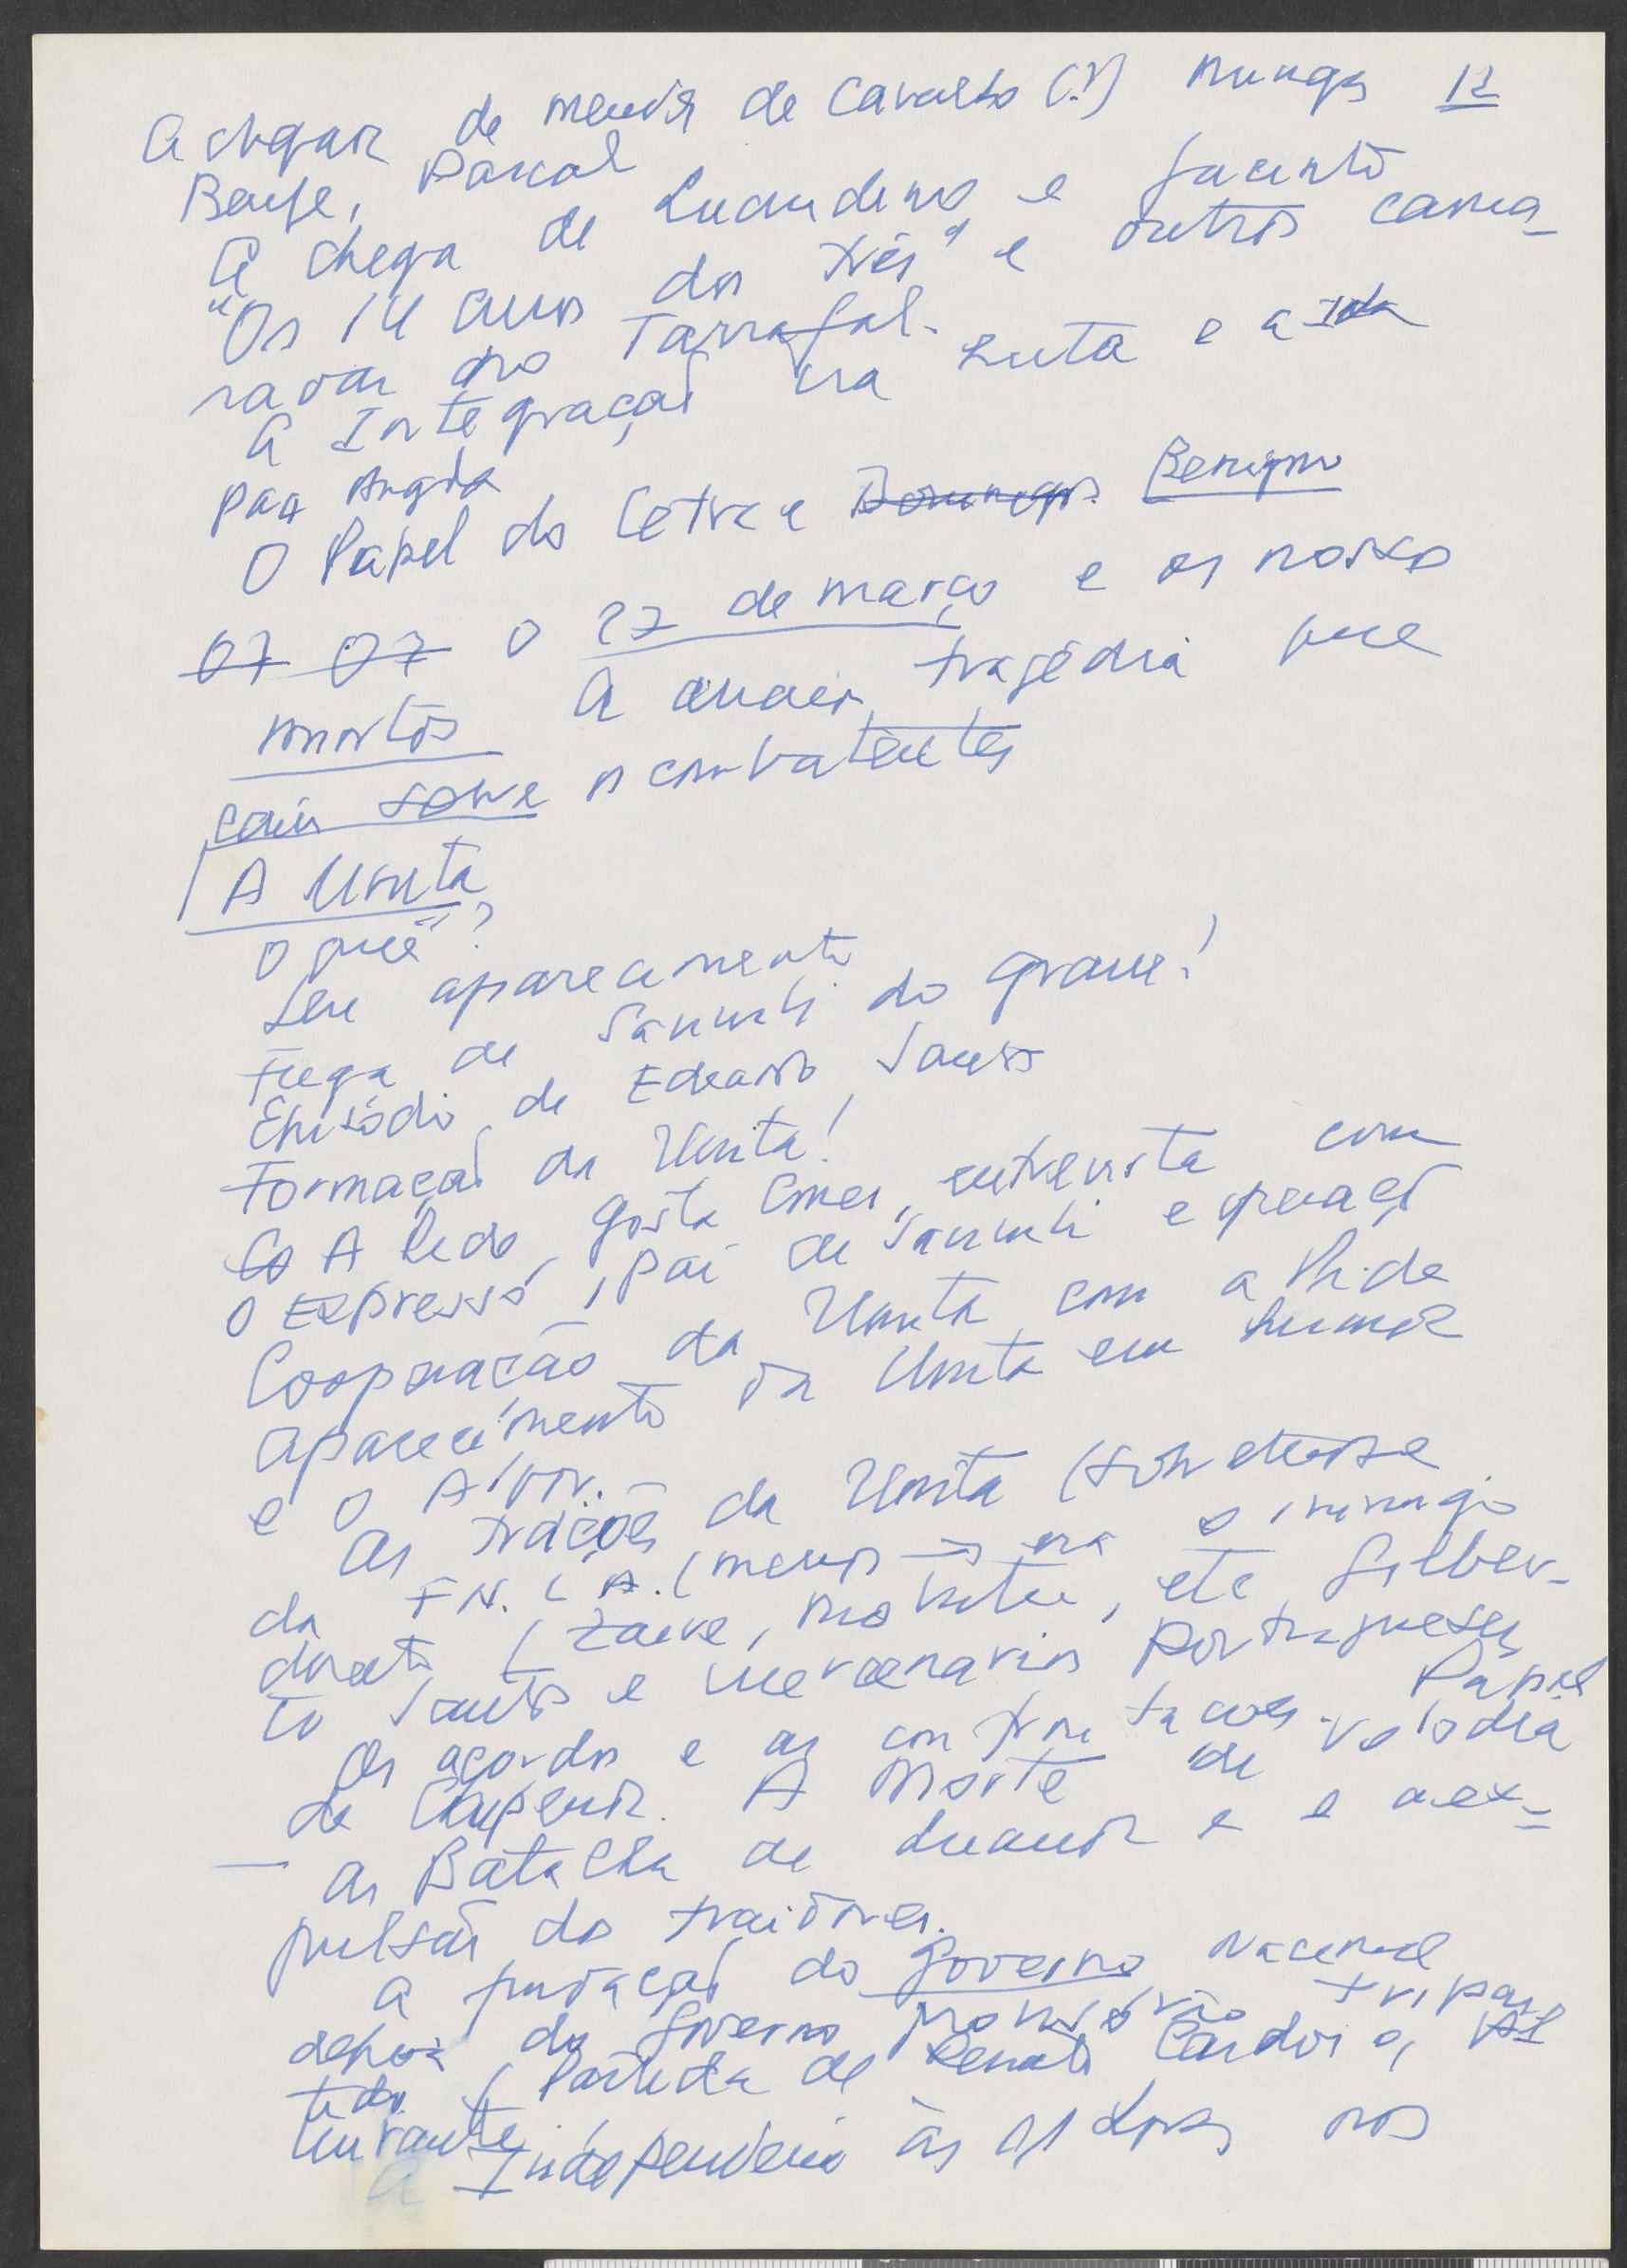 A chegar de Mendes de Carvalho (?) 12
Beije, Pascal
A chega de Luandino e Jacinto
"Os 14 anos dos três" e outros cama-
radas no Tarrafal.
A Integração na Luta e a Ida
para Angola
O Papel do Cetra e Domingos. Benigno
07 07 o 27 de março e os nosso
mortos A maior tragédia que
caiu sobre os combatentes
A Unita
o quê"?
Seu aparecimento
Fuga de Savimbi do grae!
Episódio de Eduardo Santos
Formação da Unita!
Co A Pide, Costa Gomes, entrevista com
o Expresso, pai de Savimbi e operação
Cooperação da Unita com a Pide
aparecimento da Unita em Luanda
e o Alvor.
As traições da Unita (
da F.N.L.A. (menos → era o inimigo
directo (Zaire, Mobutu, etc Gilber-
to Santos e mercenarios portugueses
Os acordos e as confrontações. Papel
de Chipenda. A Morte de Valódia
— As Batalha de Luanda e e a ex-
pulsão dos traidores.
A fundação do Governo Nacional
depois do Governo provisório tripar-
tido. (Partida de Cardoso, Al
mirante
A Independencia às 01 horas nos